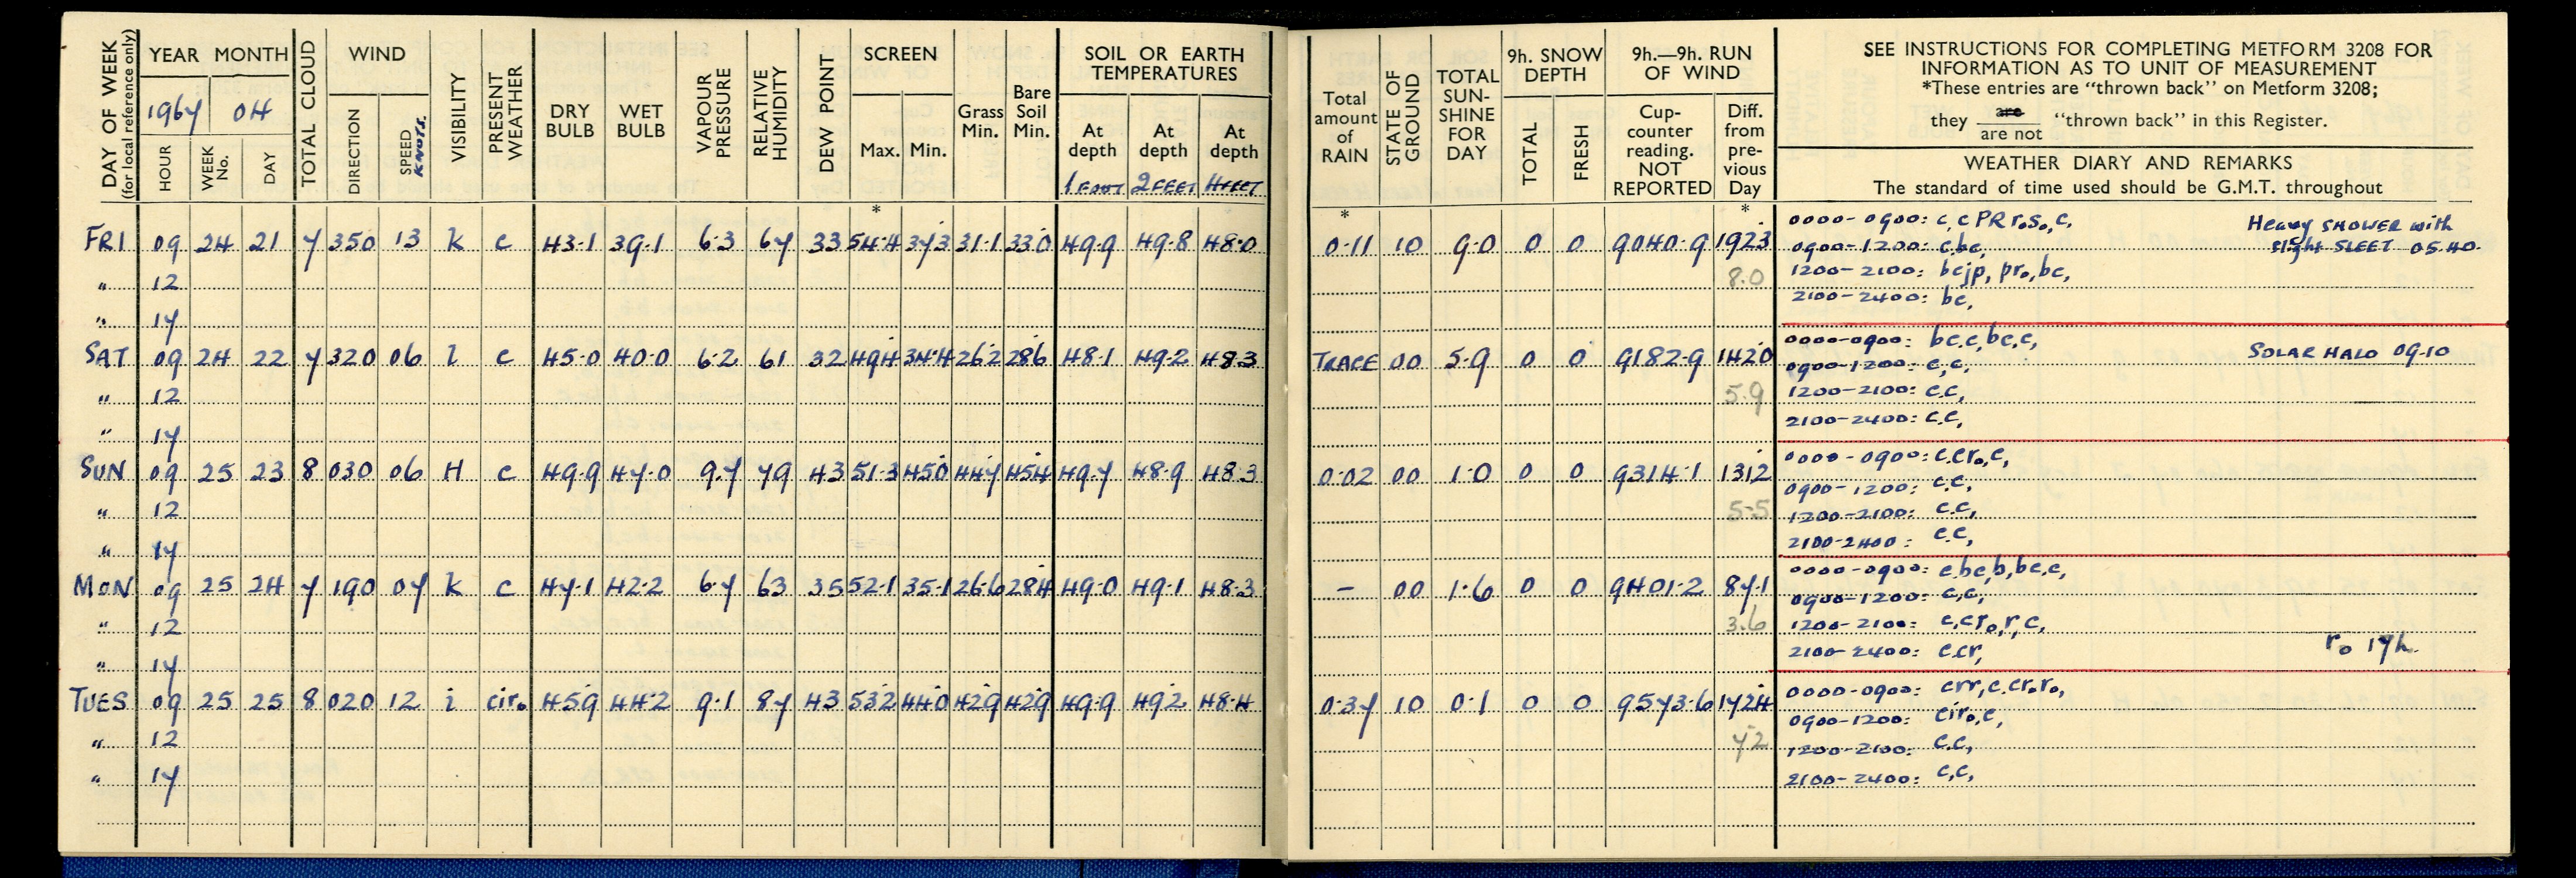 DAY OF WEEK
(for local reference only)
YEAR MONTH
1967 04
HOUR
WEEK No.
DAY
TOTAL CLOUD
WIND
DIRECTION
SPEED KNOTS.
VISIBILITY
PRESENT WEATHER
DRY BULB
WET BULB
VAPOUR PRESSURE
RELATIVE HUMIDITY
DEW POINT
SCREEN
Max. Min.
*
Grass Min.
Bare Soil Min.
SOIL OR EARTH
TEMPERATURES
At depth 1 FOOT
At depth 2 FEET
At depth 4 FEET
Total amount of RAIN
*
STATE OF GROUND
TOTAL SUN-SHINE FOR DAY
9h. SNOW DEPTH
TOTAL
FRESH
9h.—9h. RUN OF WIND
Cup-counter reading. NOT REPORTED
Diff. from pre-vious Day
*
SEE INSTRUCTIONS FOR COMPLETING METFORM 3208 FOR
INFORMATION AS TO UNIT OF MEASUREMENT
*These entries are "thrown back" on Metform 3208;
they are / are not "thrown back" in this Register.
WEATHER DIARY AND REMARKS
The standard of time used should be G.M.T. throughout
FRI 09 24 21 7 350 13 k c 43.1 39.1 6.3 67 33 54.4 37.3 31.1 33.0 49.9 49.8 48.0 0.11 10 9.0 0 0 9040.9 192.3
8.0
" 12
" 17
0000-0900: c, c PR r₀s₀, c,
Heavy SHOWER with
slight SLEET 05.40.
0900-1200: c.bc,
1200-2100: bcjp, pr₀, bc,
2100-2400: bc,
SAT 09 24 22 7 320 06 l c 45.0 40.0 6.2 61 32 49.4 34.4 26.2 28.6 48.1 49.2 48.3 TRACE 00 5.9 0 0 9182.9 142.0
5.9
" 12
" 17
0000-0900: bc.c, bc, c,
SOLAR HALO 09.10
0900-1200: c,c,
1200-2100: c.c,
2100-2400: c.c,
SUN 09 25 23 8 030 06 H c 49.9 47.0 9.7 79 43 51.3 45.0 44.7 45.4 49.7 48.9 48.3 0.02 00 1.0 0 0 9314.1 131.2
5.5
" 12
" 17
0000-0900: c.cr₀, c,
0900-1200: c.c,
1200-2100: c.c,
2100-2400: c.c,
MON 09 25 24 7 190 07 k c 47.1 42.2 6.7 63 35 52.1 35.1 26.6 28.4 49.0 49.1 48.3 - 00 1.6 0 0 9401.2 87.1
3.6
" 12
" 17
0000-0900: c.bc, b, bc, c,
0900-1200: c,c,
1200-2100: c,cr₀, r, c,
2100-2400: c.cr,
r₀ 17h.
TUES 09 25 25 8 020 12 i cir₀ 45.9 44.2 9.1 87 43 53.2 44.0 42.9 42.9 49.9 49.2 48.4 0.37 10 0.1 0 0 9573.6 172.4
7.2
" 12
" 17
0000-0900: crr, c.cr₀r₀,
0900-1200: cir₀, c,
1200-2100: c.c,
2100-2400: c,c,